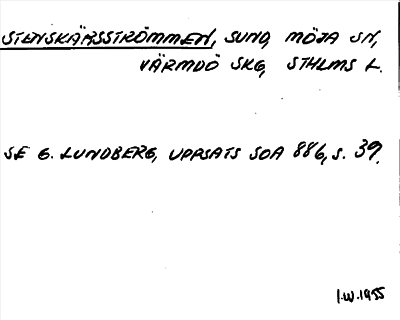 STENSKÄRSSTRÖMMEN, SUND, MÖJA SN,
VÄRMDÖ SKG, STHLMS L.
SE G. LUNDBERG, UPPSATS SOA 886, S. 39.
I.W. 1955